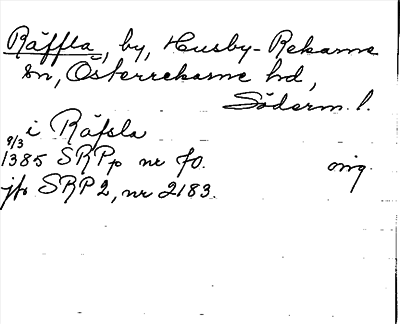 Räffla, by, Husby-Rekarne
sn, Österrekarne hd,
Söderm. l.
i Räfsla
9/3
1385 SRPp nr 70. orig.
jfr SRP 2, nr 2183.